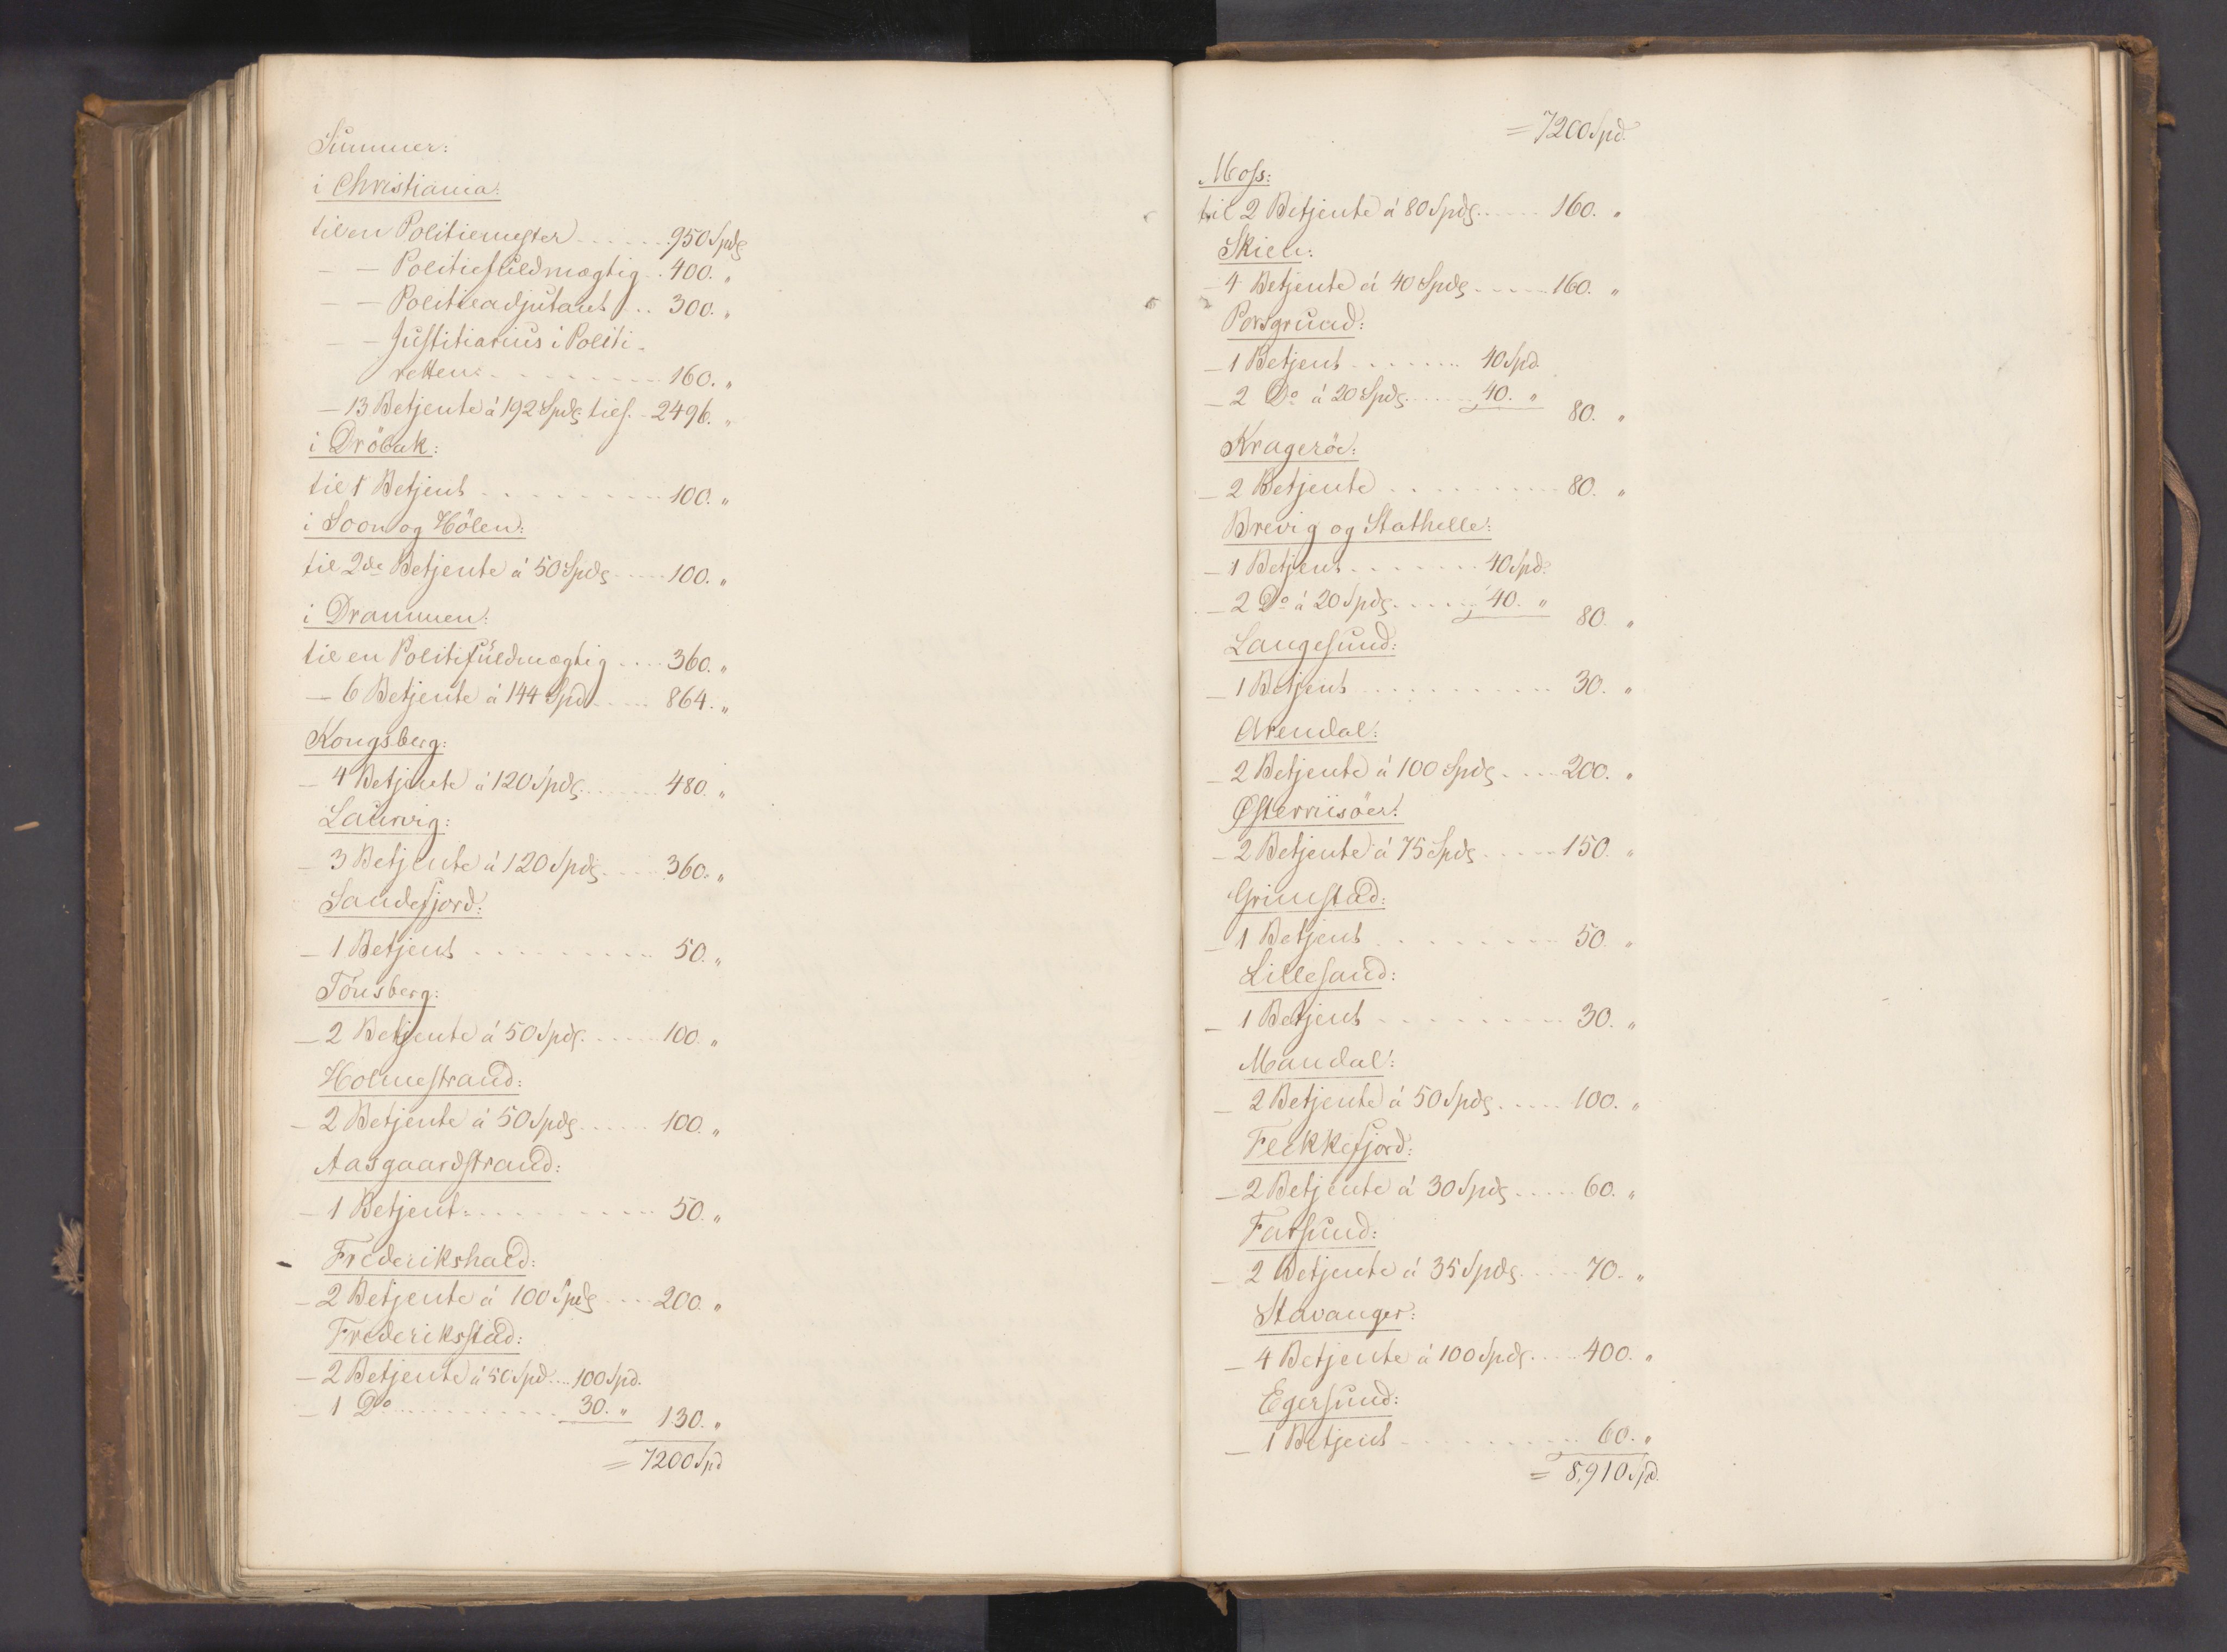 Summer:
i Christiania:
til en Politiemester ...... 950 Spds
— — Politiefuldmægtig .. 400. "
— — Politieadjutant .. 300. "
— — Justitiarius i Politi-
retten ......... 160. "
— 13 Betjente á 192 Spds tils. .. 2496. "
i Dröbak:
til 1 Betjent ......... 100. "
i Soon og Hölen:
til 2de Betjente á 50 Spds ..... 100. "
i Drammen:
til en Politifuldmægtig .... 360. "
— 6 Betjente á 144 Spd ..... 864. "
Kongsberg:
— 4 Betjente á 120 Spds ....... 480. "
Laurvig:
— 3 Betjente á 120 Spds ..... 360. "
Sandefjord:
— 1 Betjent ......... 50. "
Tönsberg:
— 2 Betjente á 50 Spds ...... 100. "
Holmestrand:
— 2 Betjente á 50 Spds ...... 100. "
Aasgaardstrand:
— 1 Betjent .......... 50. "
Frederikshald:
— 2 Betjente á 100 Spds .... 200. "
Frederiksstad:
— 2 Betjente á 50 Spd .... 100 Spd.
— 1 Do .......... 30. " 130. "
= 7200 Spd
= 7200 Spd.
Moss:
til 2 Betjente á 80 Spds ..... 160. "
Skien:
— 4 Betjente á 40 Spds ..... 160. "
Porsgrund:
— 1 Betjent ....... 40 Spd.
— 2 Do á 20 Spds ...... 40. " 80. "
Kragerøe:
— 2 Betjente .......... 80. "
Brevig og Stathelle:
— 1 Betjent ....... 40 Spd.
— 2 Do á 20 Spds ..... 40. " 80. "
Langesund:
— 1 Betjent .......... 30. "
Arendal:
— 2 Betjente á 100 Spds .... 200. "
Østerriisöer:
— 2 Betjente á 75 Spds ..... 150. "
Grimstad:
— 1 Betjent ........ 50. "
Lillesand:
— 1 Betjent ........ 30. "
Mandal:
— 2 Betjente á 50 Spds ..... 100. "
Flekkefjord:
— 2 Betjente á 30 Spds ..... 60. "
Farsund:
— 2 Betjente á 35 Spds ..... 70. "
Stavanger:
— 4 Betjente á 100 Spds ..... 400. "
Egersund:
— 1 Betjent ......... 60. "
= 8,910 Spd.